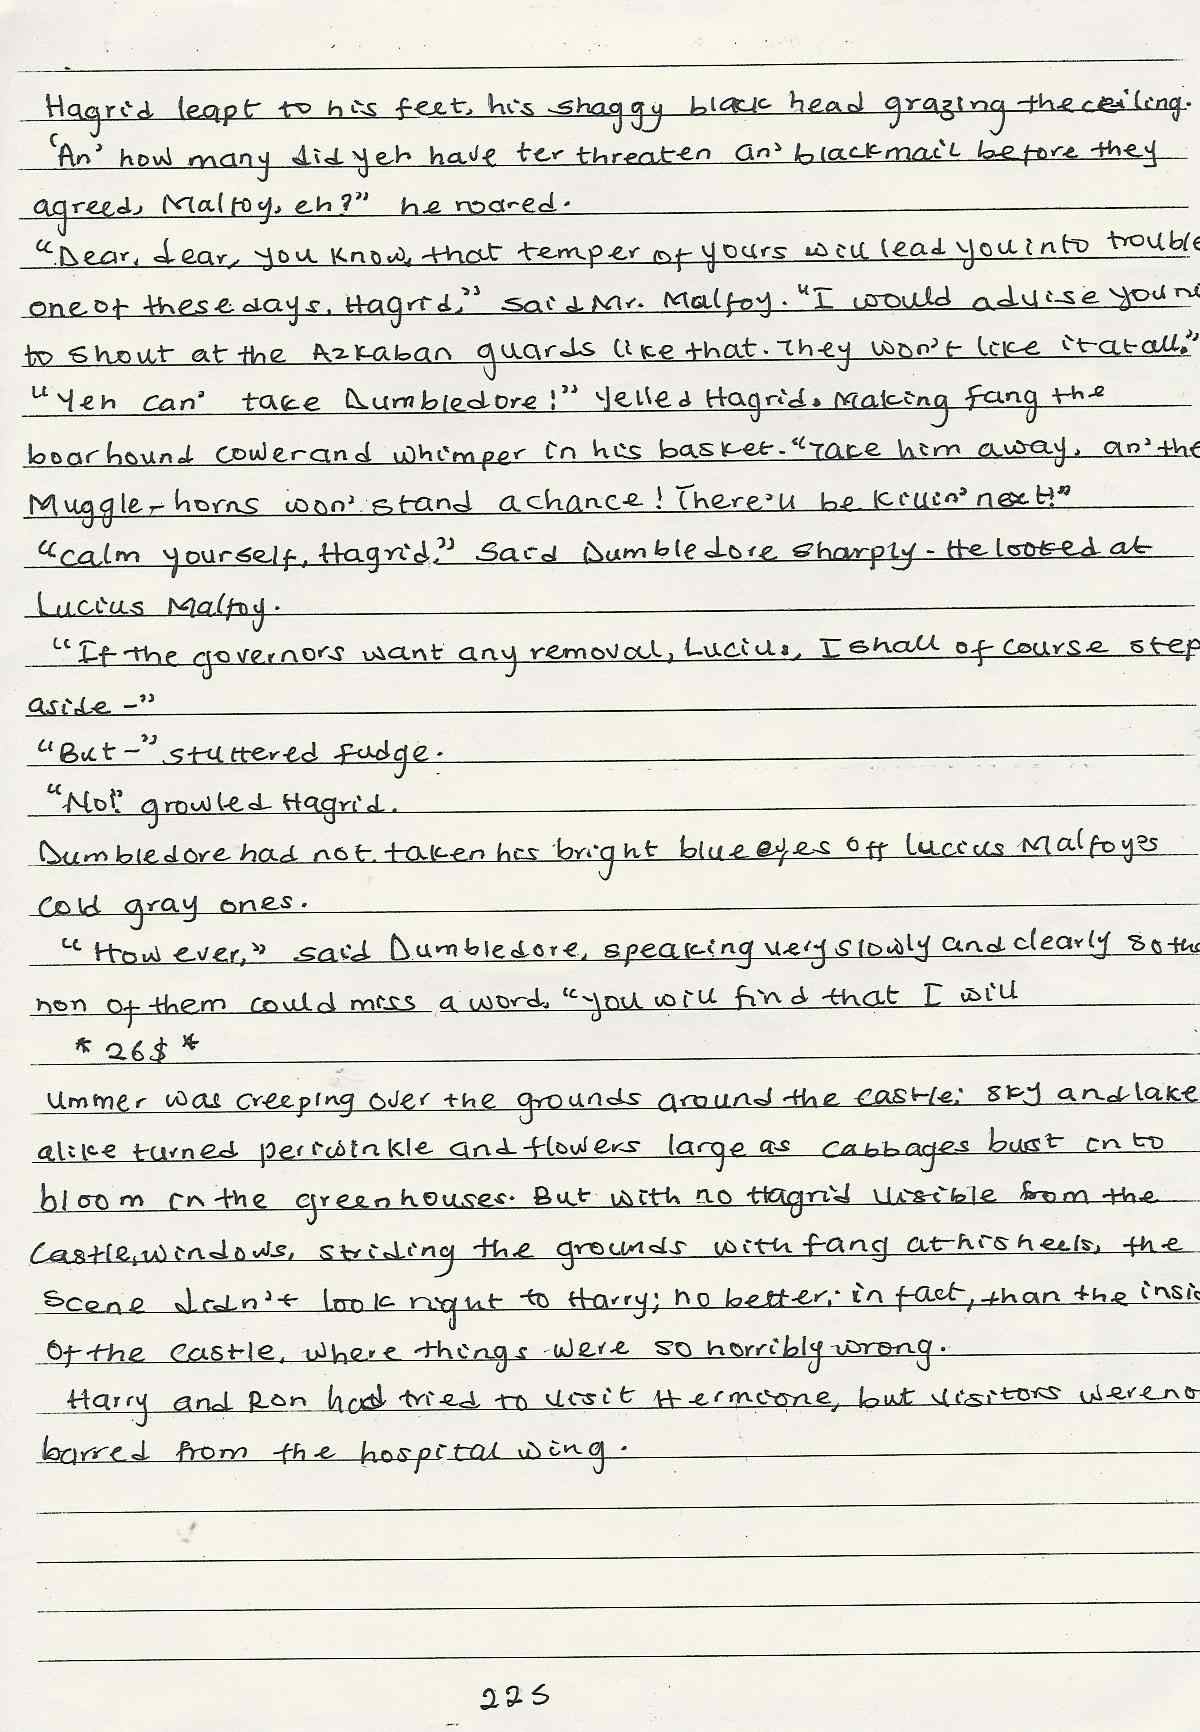 Hagrid leapt to his feet, his shaggy black head grazing the ceiling.
'An' how many did yeh have ter threaten an' blackmail before they
agreed, Malfoy, eh?" he roared.
"Dear, dear, you know, that temper of yours will lead you into trouble
one of these days, Hagrid," said Mr. Malfoy. "I would advise you no
to shout at the Azkaban guards like that. They won't like it at all."
"Yeh can' take Dumbledore!" yelled Hagrid. Making fang the
boarhound cower and whimper in his basket. "Take him away, an' the
Muggle-horns won' stand a chance! There'll be killin' next!"
"Calm yourself, Hagrid," said Dumbledore sharply. He looked at
Lucius Malfoy.
"If the governors want any removal, Lucius, I shall of course step
aside -"
"But-" stuttered fudge.
"No!" growled Hagrid.
Dumbledore had not taken his bright blue eyes off lucius Malfoy's
cold gray ones.
"However," said Dumbledore, speaking very slowly and clearly so tha
non of them could miss a word, "you will find that I will
* 26$ *
Ummer was creeping over the grounds around the castle; sky and lake
alike turned periwinkle and flowers large as cabbages bust into
bloom in the greenhouses. But with no Hagrid visible from the
Castle, windows, striding the grounds with fang at his heels, the
scene didn't look right to Harry; no better, in fact, than the insid
Of the castle, where things were so horribly wrong.
Harry and Ron had tried to visit Hermione, but visitors were no
barred from the hospital wing.
225